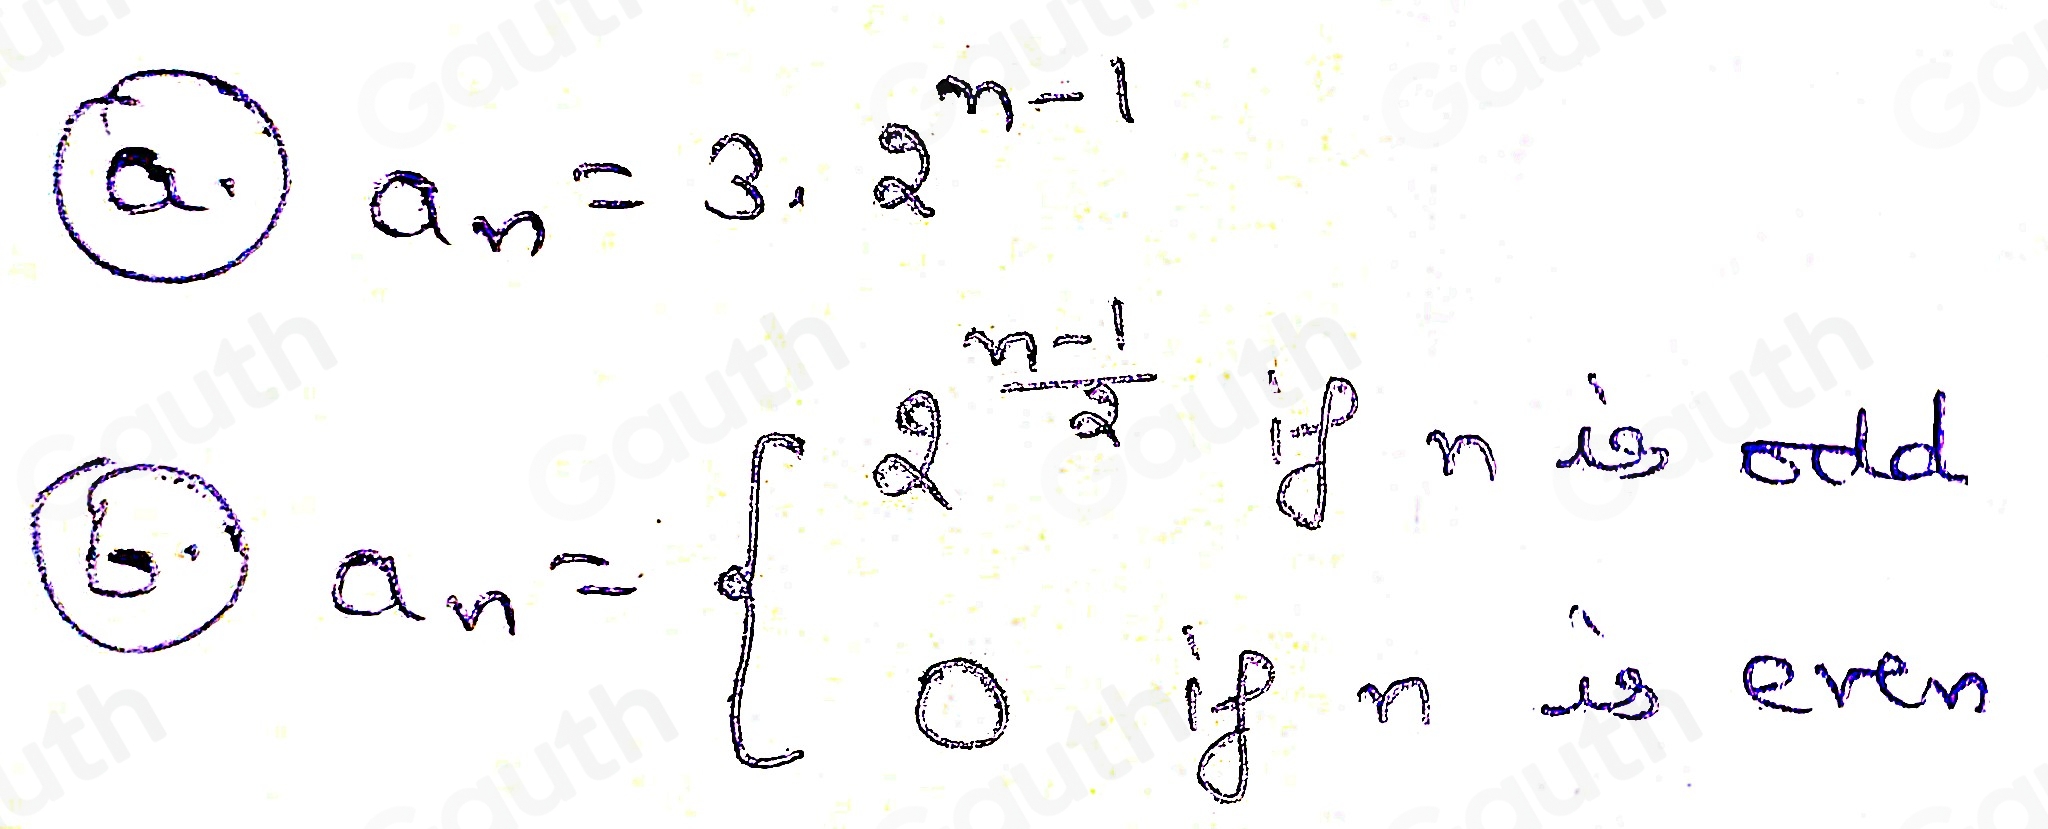 a. aₙ = 3 · 2ⁿ⁻¹
b. aₙ = { 2^((n-1)/2) if n is odd
0 if n is even
Gauth